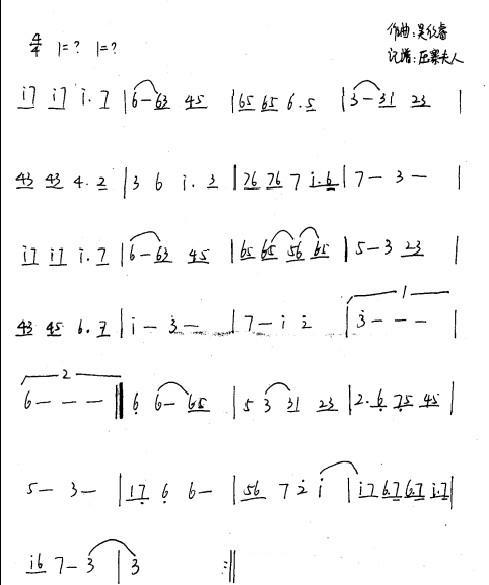 4/4 1=? 1=? 作曲:吴欣睿
记谱:压寨夫人
i7 i7 i. 7 | 6-63 45 | 65 65 6.5 | 3-31 23 |
43 43 4. 2 | 3 6 i. 3 | 76 76 7 i.6 | 7- 3- |
i7 i7 i. 7 | 6-63 45 | 65 65 56 65 | 5-3 23 |
43 45 6. 7 | i- 3- | 7- i 2 | 3 - - -
1
2
6 - - - | 6 6- 65 | 5 3 31 23 | 2. 6 75 45 |
5- 3- | 17 6 6- | 56 7 2 i | i7 6.7 6.7 i.7 |
i6 7- 3 | 3 :||